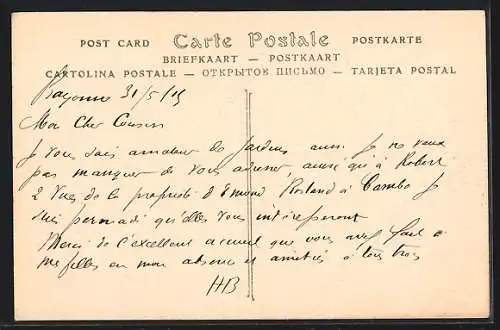 POST CARD Carte Postale POSTKARTE
BRIEFKAART — POSTKAART
CARTOLINA POSTALE — ОТКРЫТОЕ ПИСЬМО — TARJETA POSTAL
Bayonne 31/5/15
Mon Cher Cousin
Je vous sais amateur de Jardins aussi je ne veux
pas manquer de vous adresser, ainsi qu'à Robert
2 vues de la propriété d'Edmond Rostand à Cambo je
suis persuadé qu'elles vous intéresseront
Merci de l'excellent accueil que vous avez fait à
mes filles en mon absence et amitiés à tous trois
HB